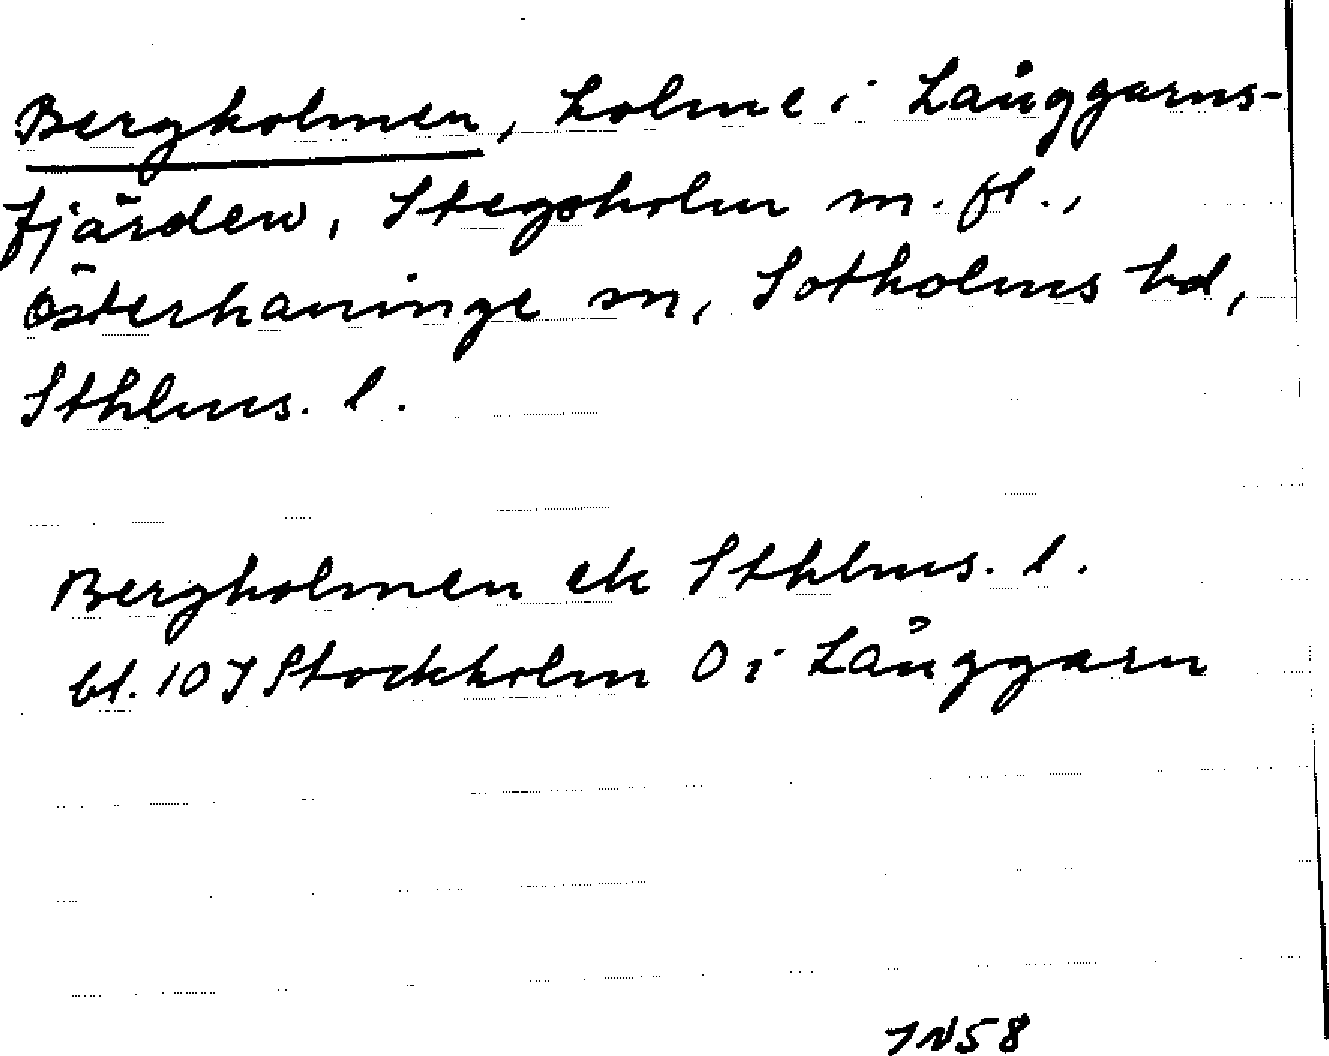 Bergholmen, holme i Långgarns-
fjärden, Stegsholm m. fl.,
Österhaninge sn, Sotholms hd,
Sthlms. l.
Bergholmen ek Sthlms. l.
bl. 107 Stockholm O i Långgarn
IN58